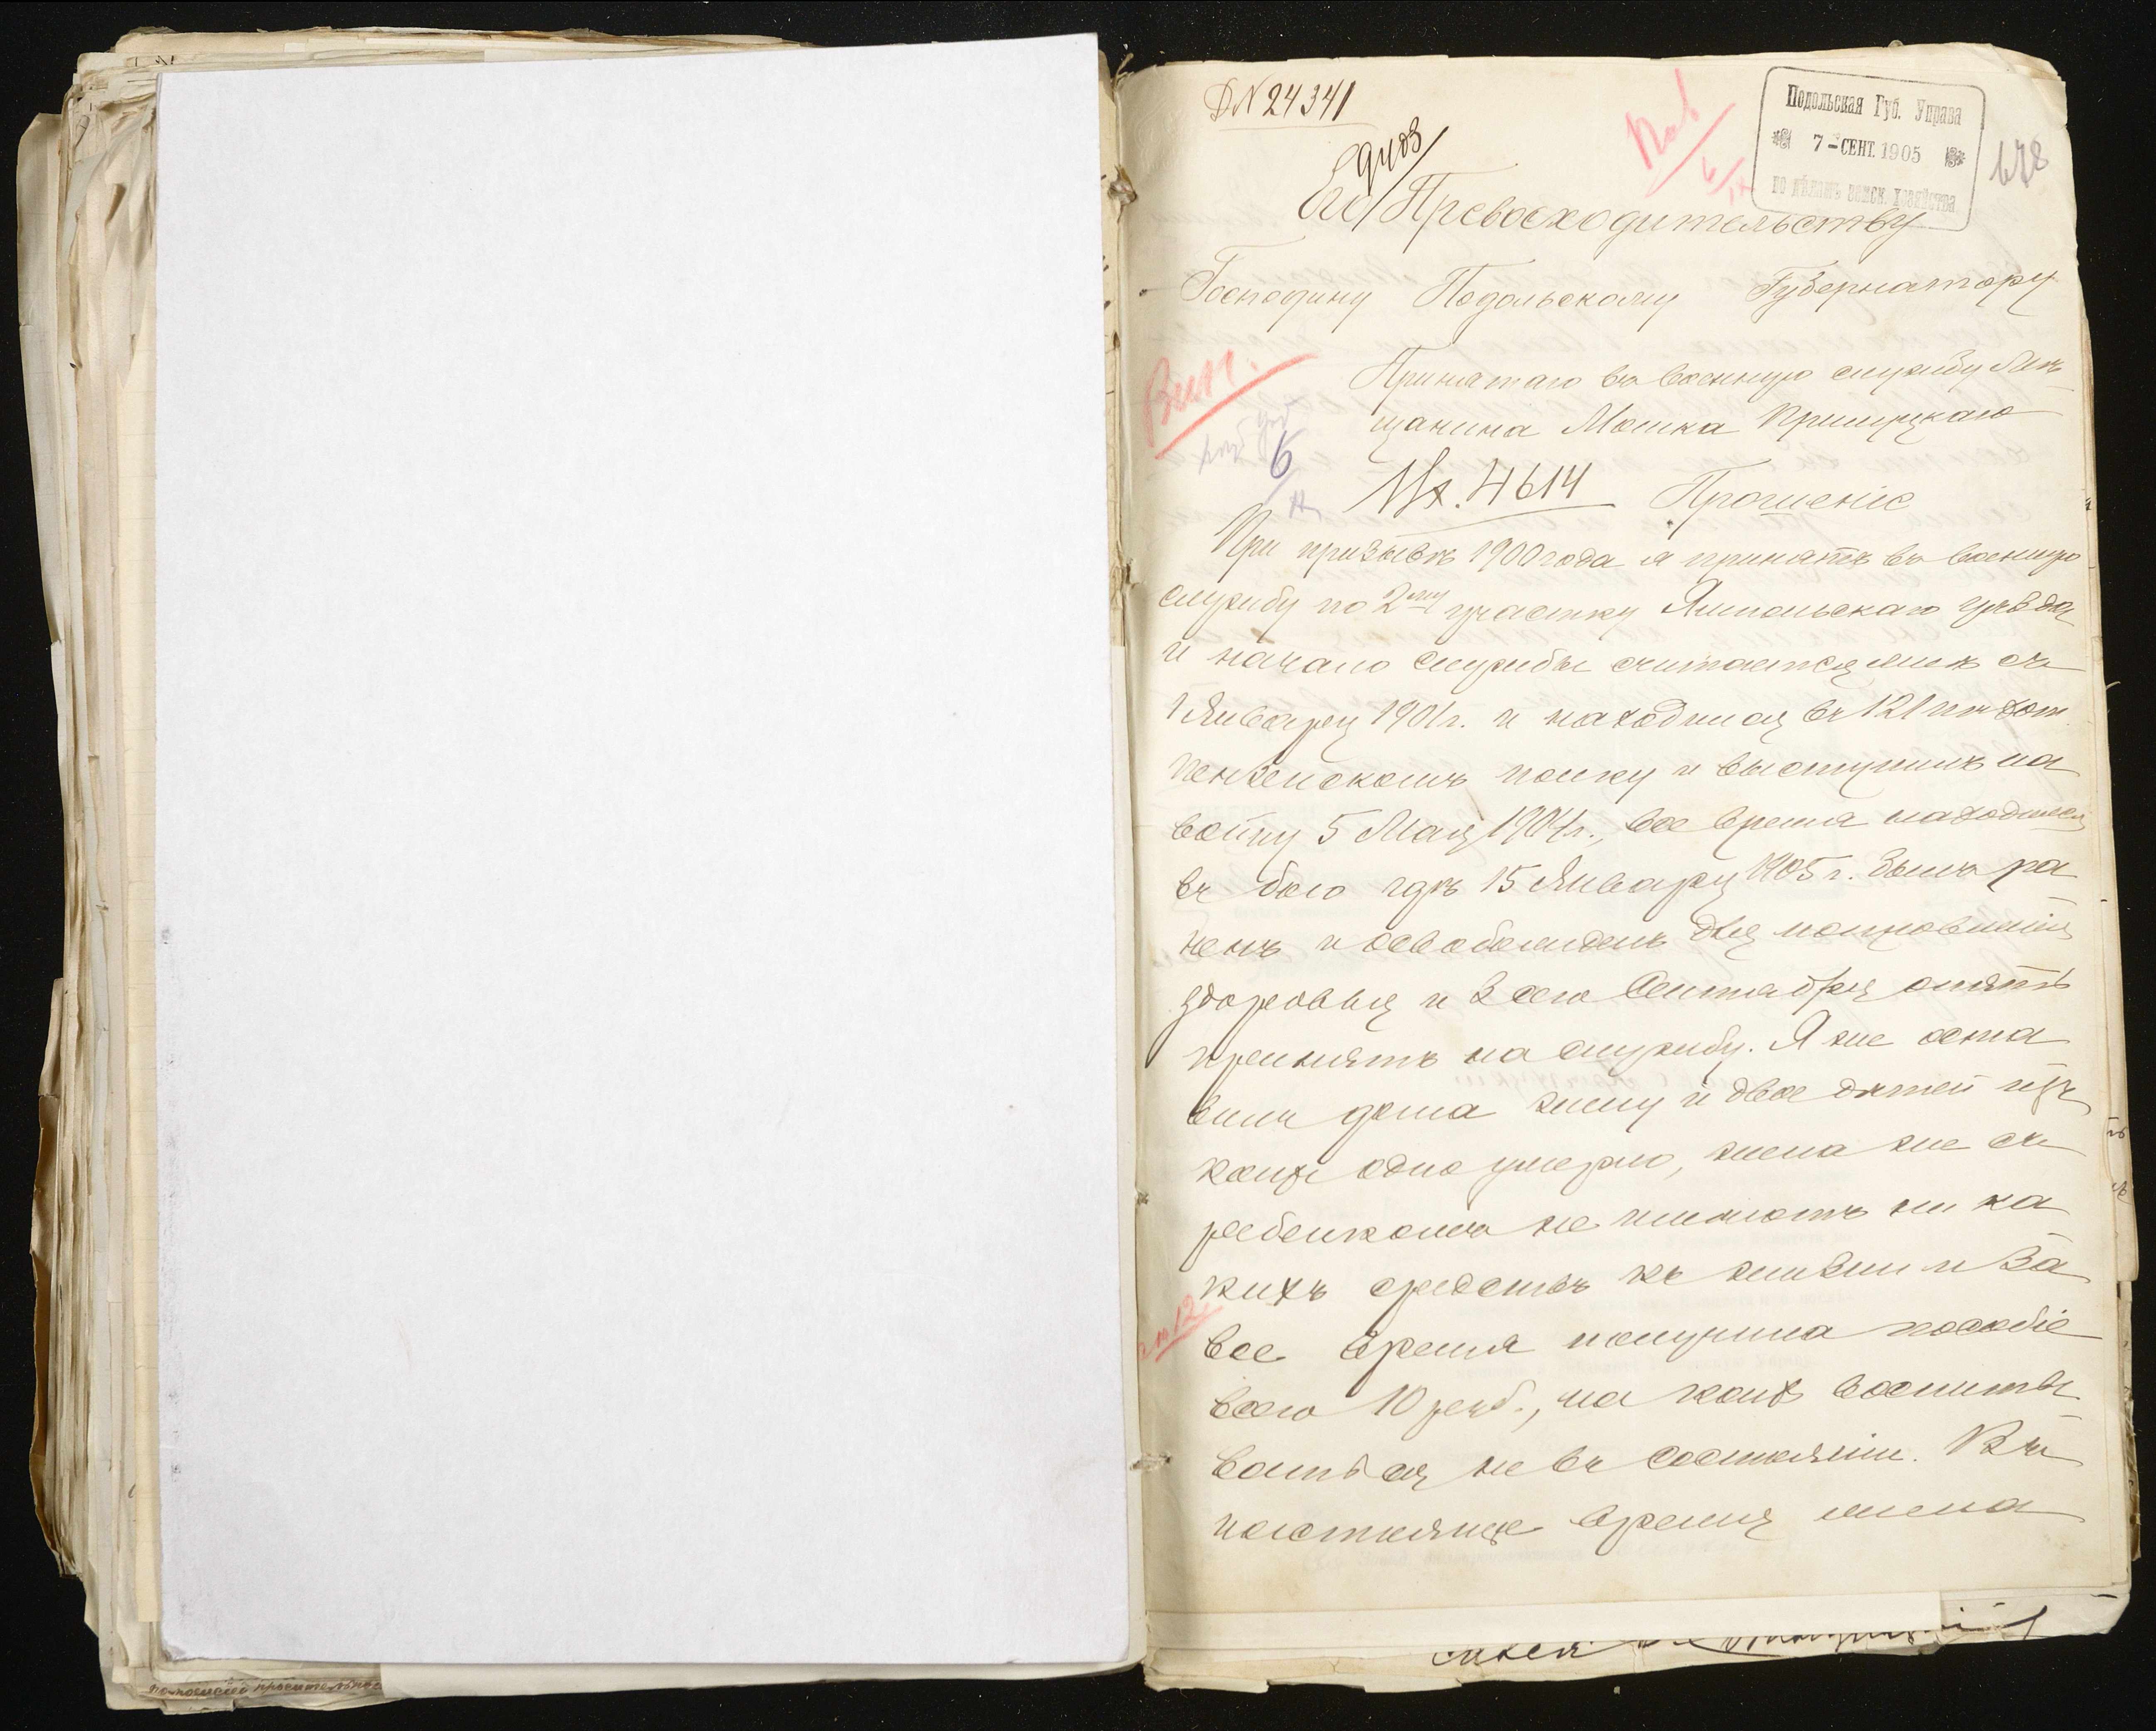 Д N 24341
Подольская Губ. Управа
7 - СЕНТ. 1905
по дѣламъ воинск. хозяйства
678
9403
Его Превосходительству
Господину Подольскому Губернатору
Вин.
Принятаго въ военную службу мѣ
щанина Мошка
6
Вх. 4614
Прошеніе
При призывѣ 1900 года я принятъ въ военную
службу по 2му участку Ямпольскаго уѣзда
и начало службы считается мнѣ съ
1 Января 1901 г. и находился въ 121 пѣхот.
пензенскомъ полку и выступилъ на
войну 5 Мая 1904 г., все время находился
въ бою гдѣ 15 Января 1905 г. былъ ра
ненъ и освобожденъ для поправленія
здоровья и 2 сего Сентября опять
принятъ на службу. Я же оста
вилъ дома жену и двое дѣтей изъ
коихъ одно умерло, жена же съ
ребенкомъ не имѣютъ ни ка
кихъ средствъ къ жизни и за
все время получила пособіе
всего 10 руб., на коихъ воспиты
ваться не въ состояніи. Въ
настояще время жена